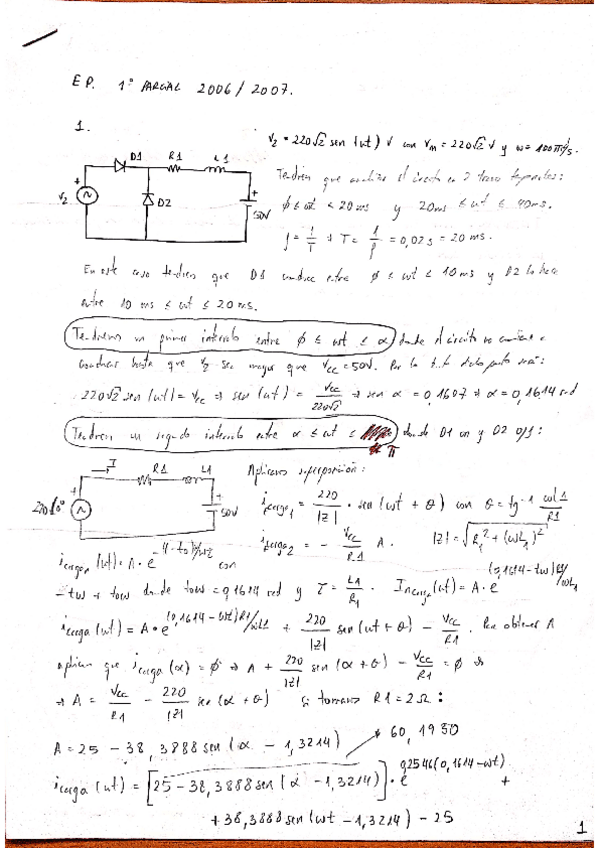 E P. 1º PARCIAL 2006/2007.
1.
D1 R1 L1
V2 D2 50V
v2 = 220√2 sen (wt) V con Vm = 220√2 V y w = 100π r/s.
Tendrem que analizar el circuito en 2 tramos
0 ≤ wt < 20 ms y 20 ms ≤ wt ≤ 40 ms.
f = 1/T → T = 1/f = 0,02 s = 20 ms.
En este caso tendrem que D1 conduce entre 0 ≤ wt < 10 ms y D2 lo hace
entre 10 ms ≤ wt ≤ 20 ms.
Tendrem un primer intervalo entre 0 ≤ wt ≤ α donde el circuito no comienza a
conducir hasta que V2 sea mayor que Vcc = 50V. Por lo tanto dicho punto será:
220√2 sen(wt) = Vcc ⇒ sen(wt) = Vcc/220√2 ⇒ sen α = 0,1607 ⇒ α = 0,1614 rad
Tendrem un segundo intervalo entre α ≤ wt ≤ π donde D1 on y D2 off:
I R1 L1
220∟0° 50V
Aplicamos superposición:
icarga1 = 220/|Z| · sen(wt + θ) con θ = tg-1 wL1/R1
icarga2 = - Vcc/R1 A. |Z| = √R1² + (wL1)²
icarga (wt) = A · e con
-tw + tow donde tow = 0,1614 rad y τ = L1/R1. Incarga(wt) = A · e^(0,1614 - tw)R1/wL1
icarga (wt) = A · e^(0,1614 - wt)R1/wL1 + 220/|Z| sen(wt + θ) - Vcc/R1. Para obtener A
aplicam que icarga (α) = 0 ⇒ A + 220/|Z| sen(α + θ) - Vcc/R1 = 0 ⇒
⇒ A = Vcc/R1 - 220/|Z| sen(α + θ) Si tomamos R1 = 2Ω:
A = 25 - 38,3888 sen(α - 1,3214) → 60,1930
icarga (wt) = [25 - 38,3888 sen(α - 1,3214)] · e^0,2546(0,1614 - wt) +
+ 38,3888 sen(wt - 1,3214) - 25
1